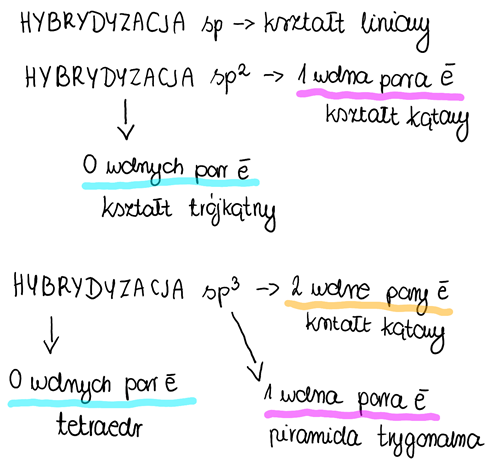 HYBRYDYZACJA sp → kształt liniowy
HYBRYDYZACJA sp² → 1 wolna para ē
kształt kątowy
↓
0 wolnych par ē
kształt trójkątny
HYBRYDYZACJA sp³ → 2 wolne pary ē
kształt kątowy
0 wolnych par ē
tetraedr
1 wolna para ē
piramida trygonalna